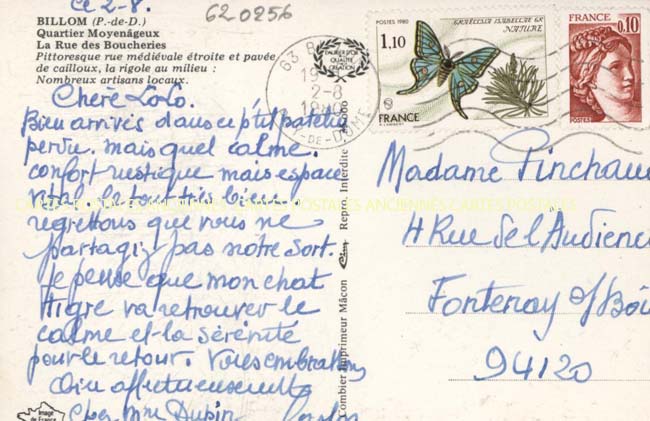 Ce 2-8.
620256
BILLOM (P.-de-D.)
Quartier Moyenâgeux
La Rue des Boucheries
Pittoresque rue médiévale étroite et pavée
de cailloux, la rigole au milieu :
Nombreux artisans locaux.
Chère Lolo.
Bien arrivés dans ce p'tit patelin
perdu. mais quel calme.
confort rustique mais espace
le tout très bien
regrettons que vous ne
partagiez pas notre sort.
Je pense que mon chat
Tigre va retrouver le
calme et la sérénité
pour le retour. Vous embrassons
affectueusement
Chez Mme Dupin
Image
de France
Combier Imprimeur Mâcon
Cim
Repro. Interdite
63 B
19
2-8
19
Y-DE-DÔME
POSTES 1980
GRAELLSIA ISABELLAE GR
NATURE
1,10
FRANCE
FRANCE
0,10
POSTES
Madame Pinchau
4 Rue de l'Audience
Fontenay s/ Boi
94120
CARTES POSTALES ANCIENNES CARTES POSTALES